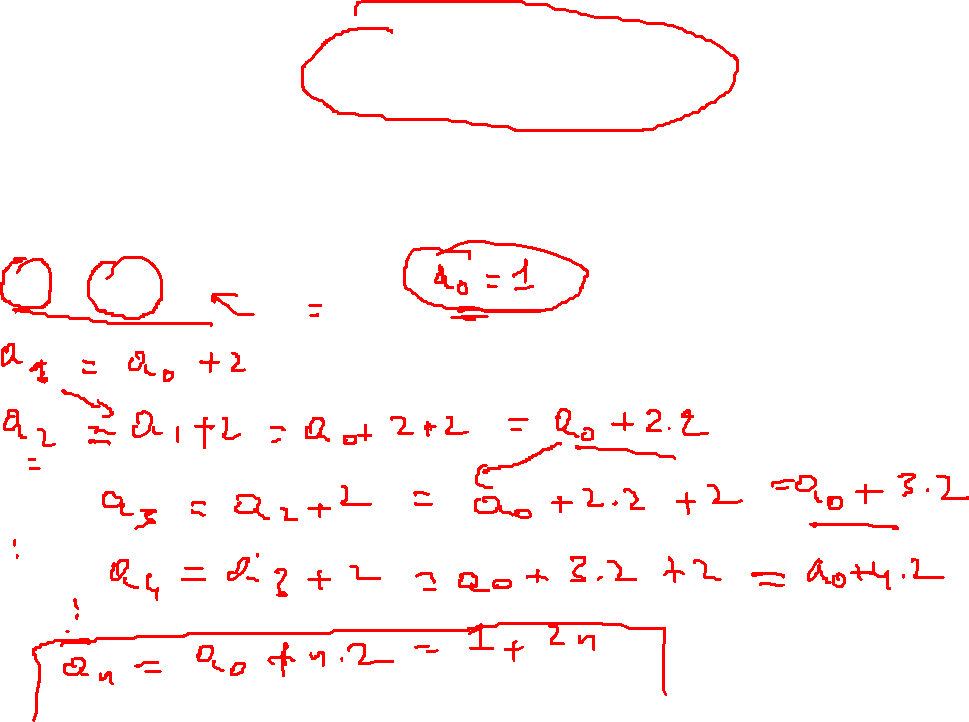 = a₀ = 1
a₁ = a₀ + 2
a₂ = a₁ + 2 = a₀ + 2 + 2 = a₀ + 2.2
a₃ = a₂ + 2 = a₀ + 2.2 + 2 = a₀ + 3.2
a₄ = a₃ + 2 = a₀ + 3.2 + 2 = a₀ + 4.2
aₙ = a₀ + n.2 = 1 + 2n